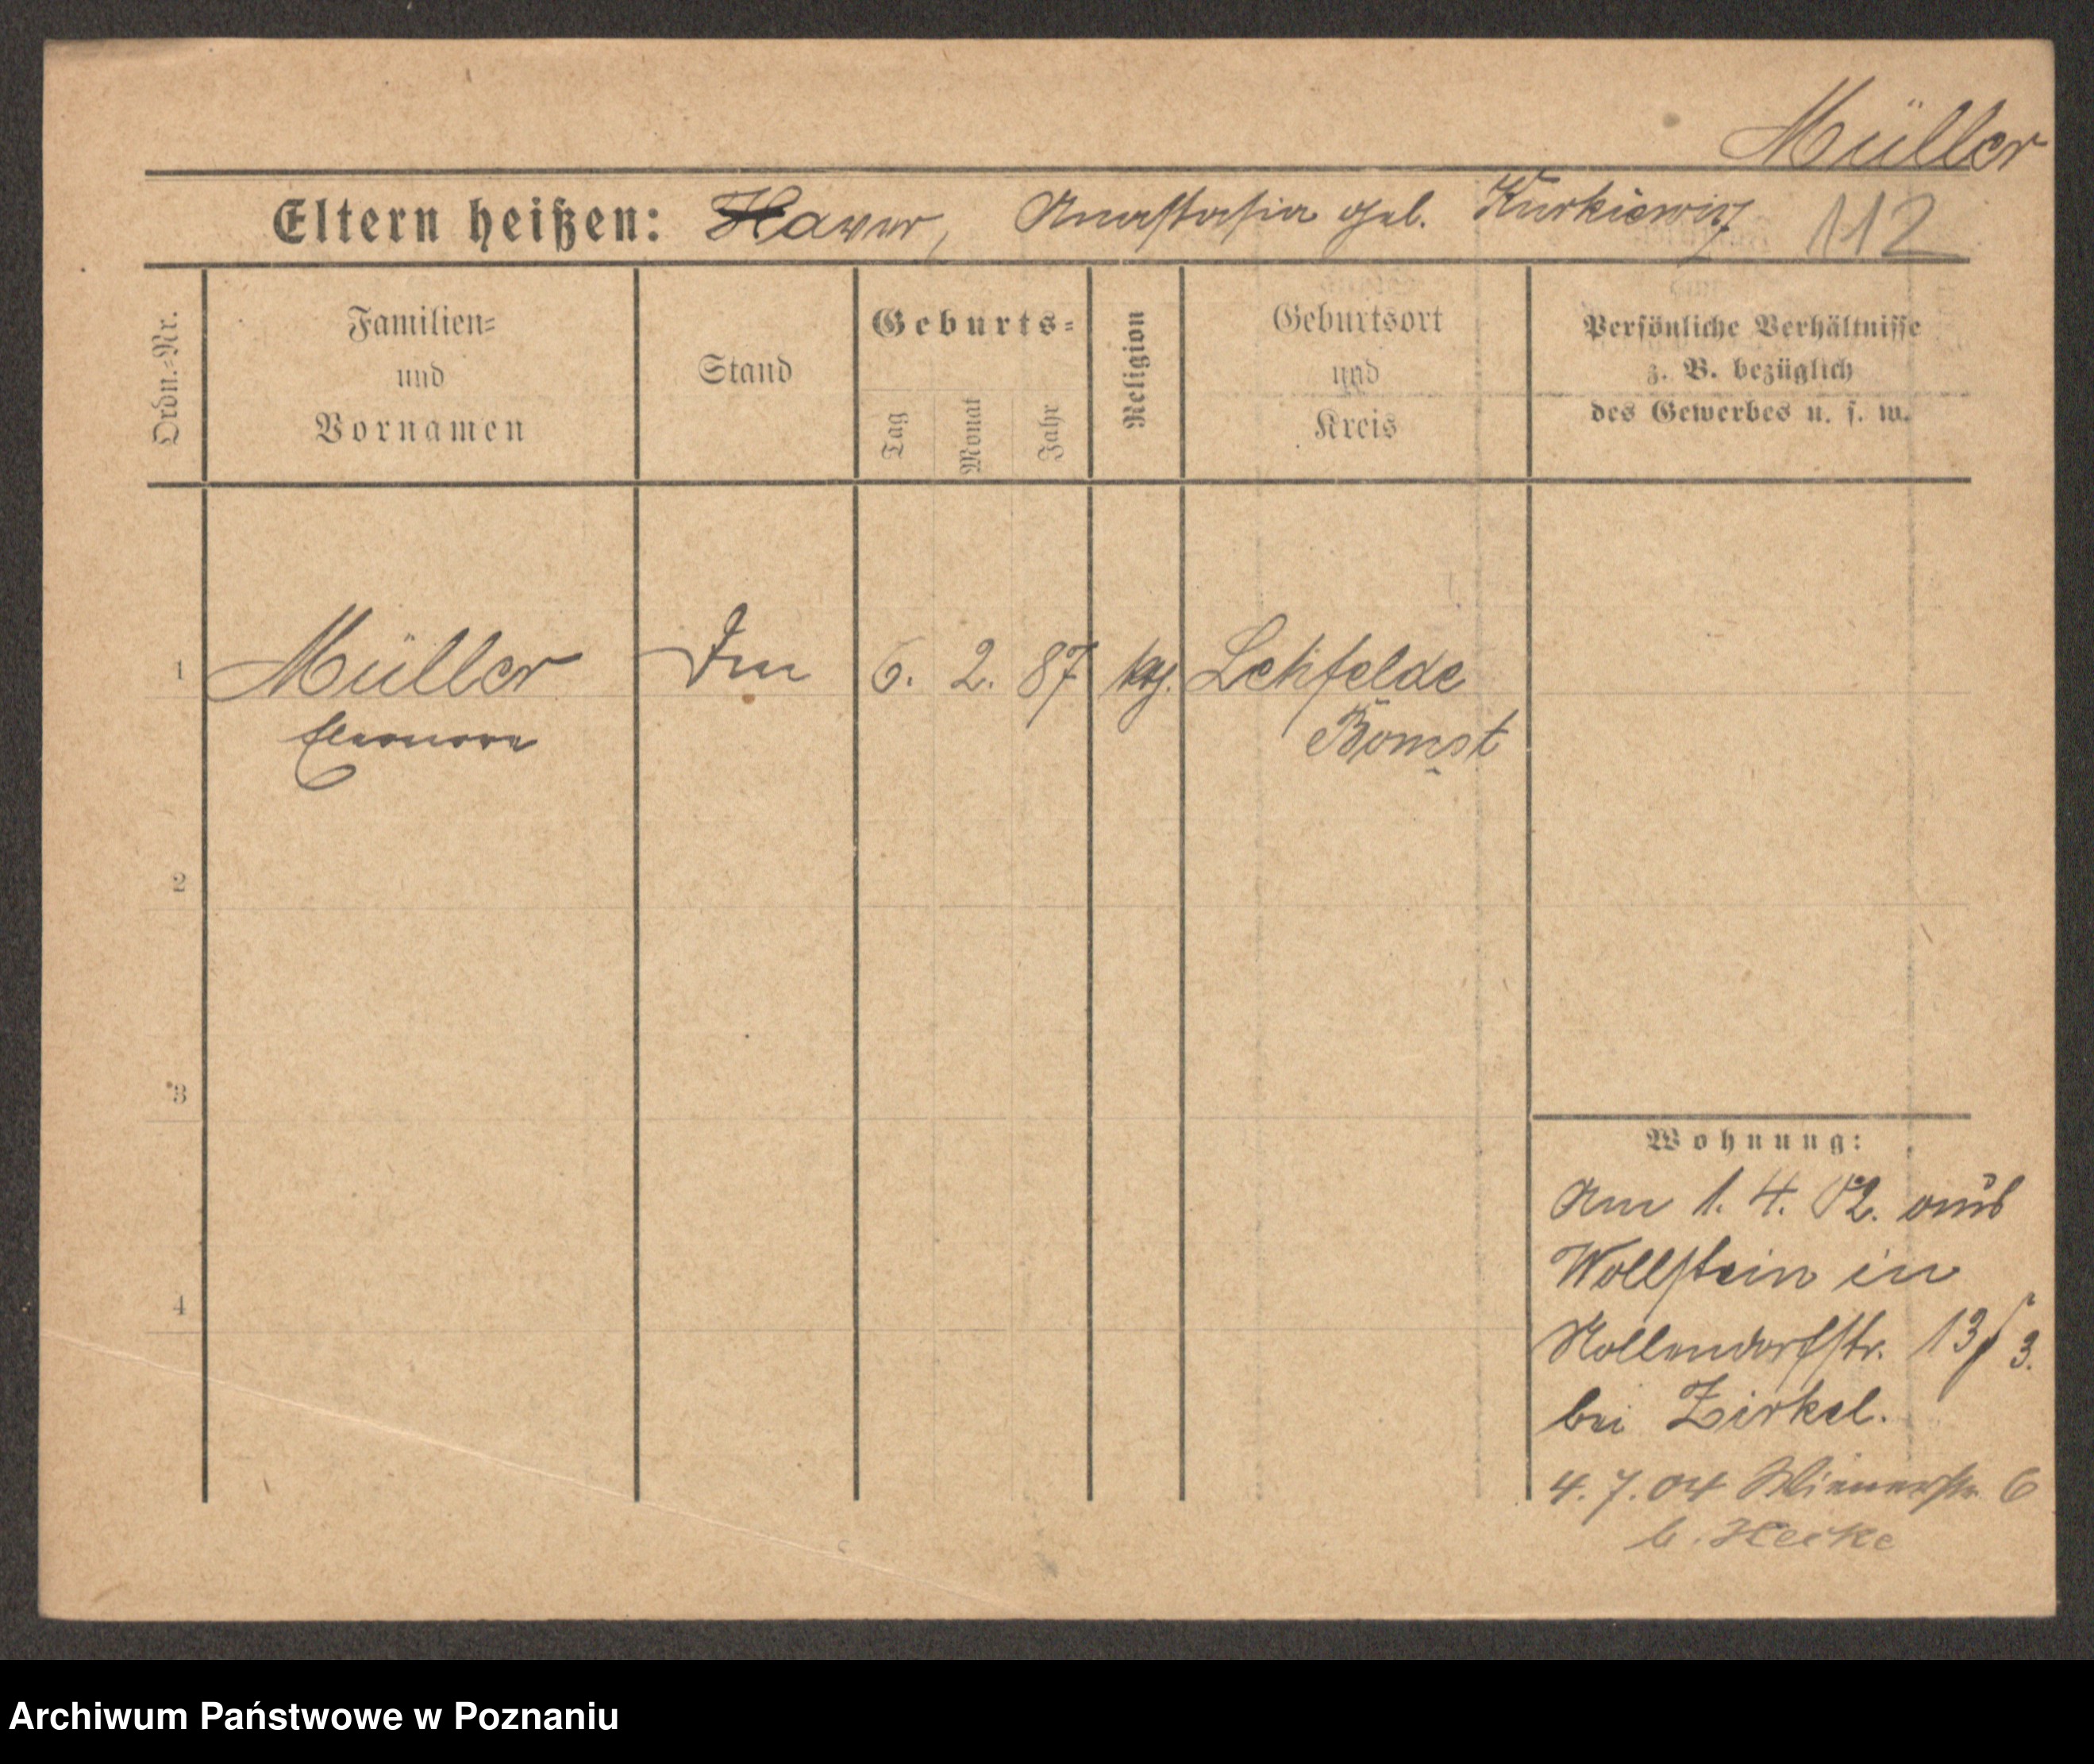 Müller
Eltern heißen: Xaver, Anastasia geb. Kurkiewicz 112
Ordn.-Nr.
Familien-
und
Vornamen
Stand
Geburts-
Tag
Monat
Jahr
Religion
Geburtsort
und
Kreis
Persönliche Verhältnisse
z. B. bezüglich
des Gewerbes u. s. w.
1 Müller 6. 2. 87 Lehfelde
Eleonore Bomst
2
3
4
Wohnung:
Am 1. 4. 02. aus
Wollstein in
Nollendorfstr. 13 3.
bei Zirkel.
4. 7. 04 Wienerstr. 6
b. Heike
Archiwum Państwowe w Poznaniu